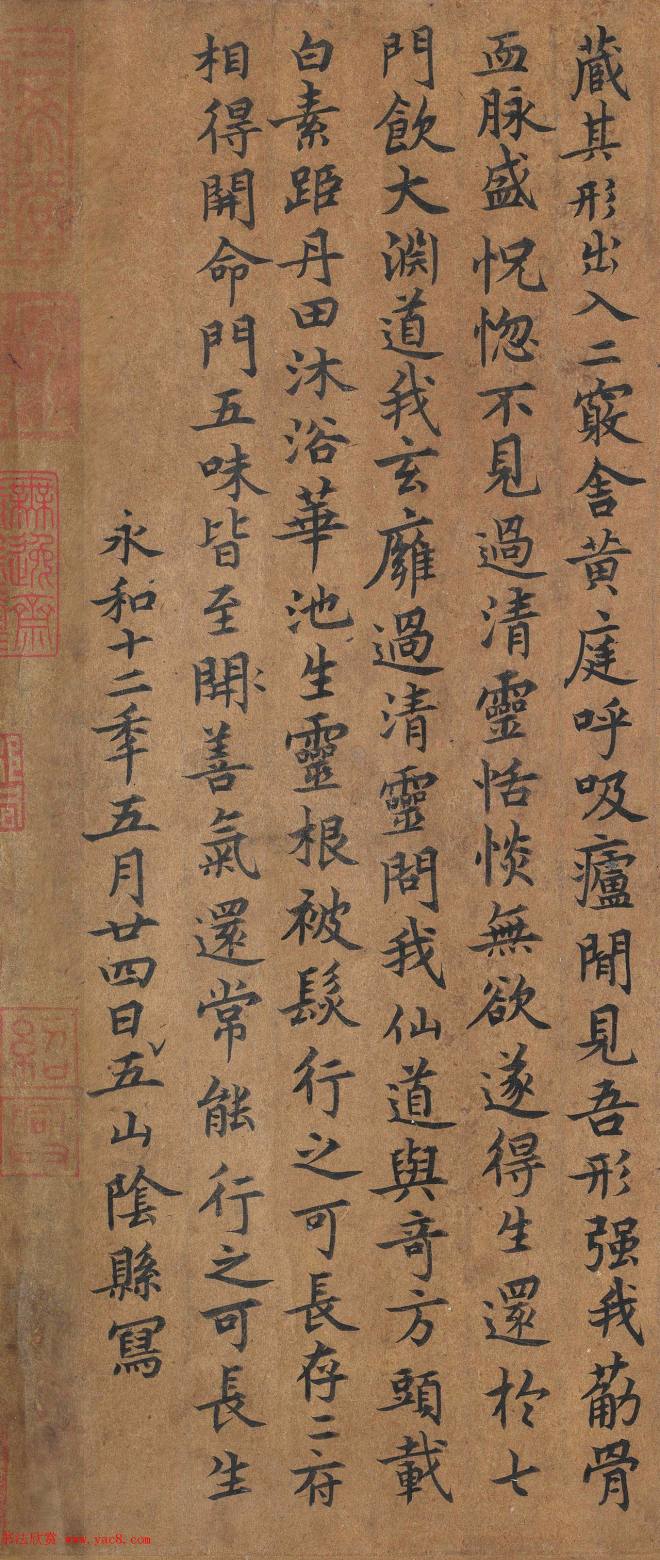 藏其形出入二竅舍黄庭呼吸廬間見吾形强我筋骨
血脉盛怳惚不見過清靈恬惔無欲遂得生還於七
門飲大淵道我玄廱過清靈問我仙道與奇方頭載
白素距丹田沐浴華池生靈根被髮行之可長存二府
相得開命門五味皆至開善氣還常能行之可長生
永和十二年五月廿四日五山陰縣寫
書法欣赏 www.yac8.com